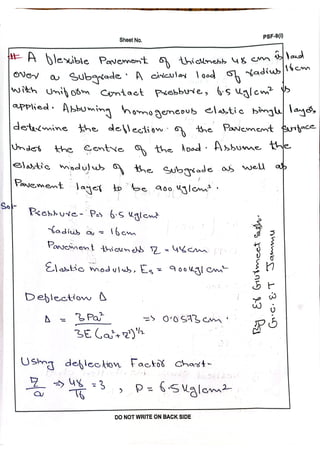 Sheet No.
PSF-8(i)
# A flexible Pavement of thickness 48 cm is laid
over a Subgrade. A circular load of radius 16cm
with uniform Contact Pressure, 6.5 kg/cm² is
applied. Assuming homogeneous elastic single layer,
determine the deflection of the Pavement Surface
Under the Centre of the load. Assume the
elastic modulus of the Subgrade as well as
Pavement layer to be 900 kg/cm².
Sol-
Pressure- P= 6.5 kg/cm²
radius a = 16cm
Pavement thickness Z = 48cm
Elastic modulus, Es = 900kg/cm²
Deflection Δ
Δ = 3Pa² / 2E(a²+z²)^1/2 => 0.0593 cm.
Using deflection Factor chart-
Z/a => 48/16 = 3, P= 6.5 kg/cm²
By Er Gurmeet Sir
G.C.E.T Jammu
DO NOT WRITE ON BACK SIDE